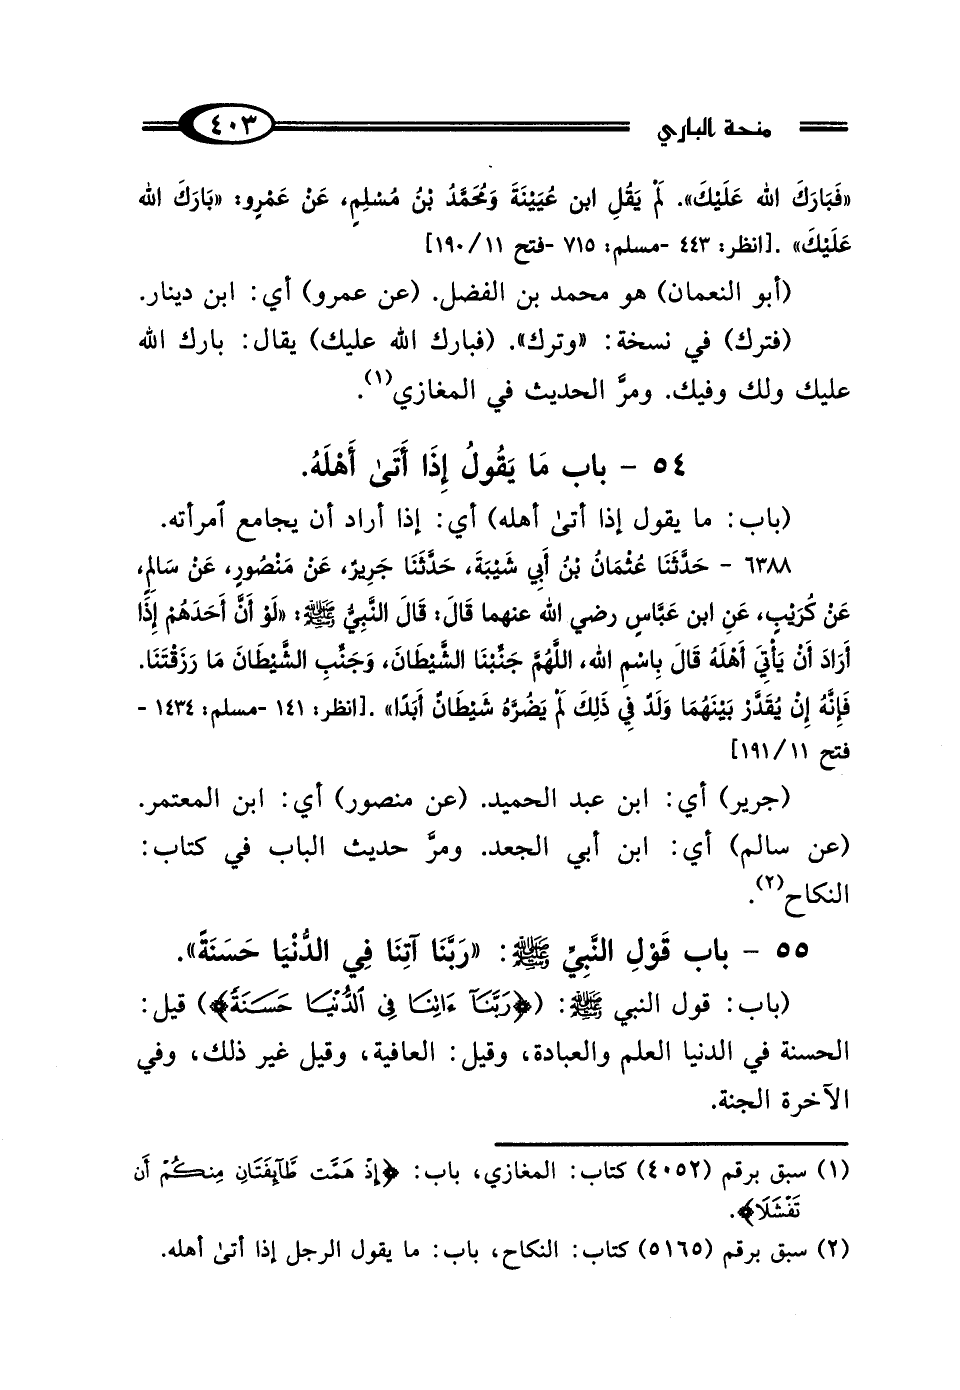 منحة الباري ٤٠٣
«فَبَارَكَ الله عَلَيْكَ». لَمْ يَقُلِ ابن عُيَيْنَةَ وَمُحَمَّدُ بْنُ مُسْلِمٍ، عَنْ عَمْرٍو: «بَارَكَ الله
عَلَيْكَ» .[انظر: ٤٤٣ -مسلم: ٧١٥ -فتح ١١/ ١٩٠]
(أبو النعمان) هو محمد بن الفضل. (عن عمرو) أي: ابن دينار.
(فترك) في نسخة: «وترك». (فبارك الله عليك) يقال: بارك الله
عليك ولك وفيك. ومرَّ الحديث في المغازي(١).
٥٤ - باب مَا يَقُولُ إِذَا أَتَىٰ أَهْلَهُ.
(باب: ما يقول إذا أتىٰ أهله) أي: إذا أراد أن يجامع ٱمرأته.
٦٣٨٨ - حَدَّثَنَا عُثْمَانُ بْنُ أَبِي شَيْبَةَ، حَدَّثَنَا جَرِيرٌ، عَنْ مَنْصُورٍ، عَنْ سَالِمٍ،
عَنْ كُرَيْبٍ، عَنِ ابن عَبَّاسٍ رضي الله عنهما قَالَ: قَالَ النَّبِيُّ ﷺ: «لَوْ أَنَّ أَحَدَهُمْ إِذَا
أَرَادَ أَنْ يَأْتِيَ أَهْلَهُ قَالَ بِاسْمِ الله، اللَّهُمَّ جَنِّبْنَا الشَّيْطَانَ، وَجَنِّبِ الشَّيْطَانَ مَا رَزَقْتَنَا.
فَإِنَّهُ إِنْ يُقَدَّرْ بَيْنَهُمَا وَلَدٌ فِي ذَلِكَ لَمْ يَضُرَّهُ شَيْطَانٌ أَبَدًا» .[انظر: ١٤١ -مسلم: ١٤٣٤ -
فتح ١١/ ١٩١]
(جرير) أي: ابن عبد الحميد. (عن منصور) أي: ابن المعتمر.
(عن سالم) أي: ابن أبي الجعد. ومرَّ حديث الباب في كتاب:
النكاح(٢).
٥٥ - باب قَوْلِ النَّبِيِّ ﷺ: «رَبَّنَا آتِنَا فِي الدُّنْيَا حَسَنَةً».
(باب: قول النبي ﷺ: (﴿رَبَّنَآ ءَاتِنَا فِى ٱلدُّنْيَا حَسَنَةً﴾) قيل:
الحسنة في الدنيا العلم والعبادة، وقيل: العافية، وقيل غير ذلك، وفي
الآخرة الجنة.
(١) سبق برقم (٤٠٥٢) كتاب: المغازي، باب: ﴿إِذْ هَمَّت طَّآئِفَتَانِ مِنكُمْ أَن
تَفْشَلَا﴾.
(٢) سبق برقم (٥١٦٥) كتاب: النكاح، باب: ما يقول الرجل إذا أتىٰ أهله.